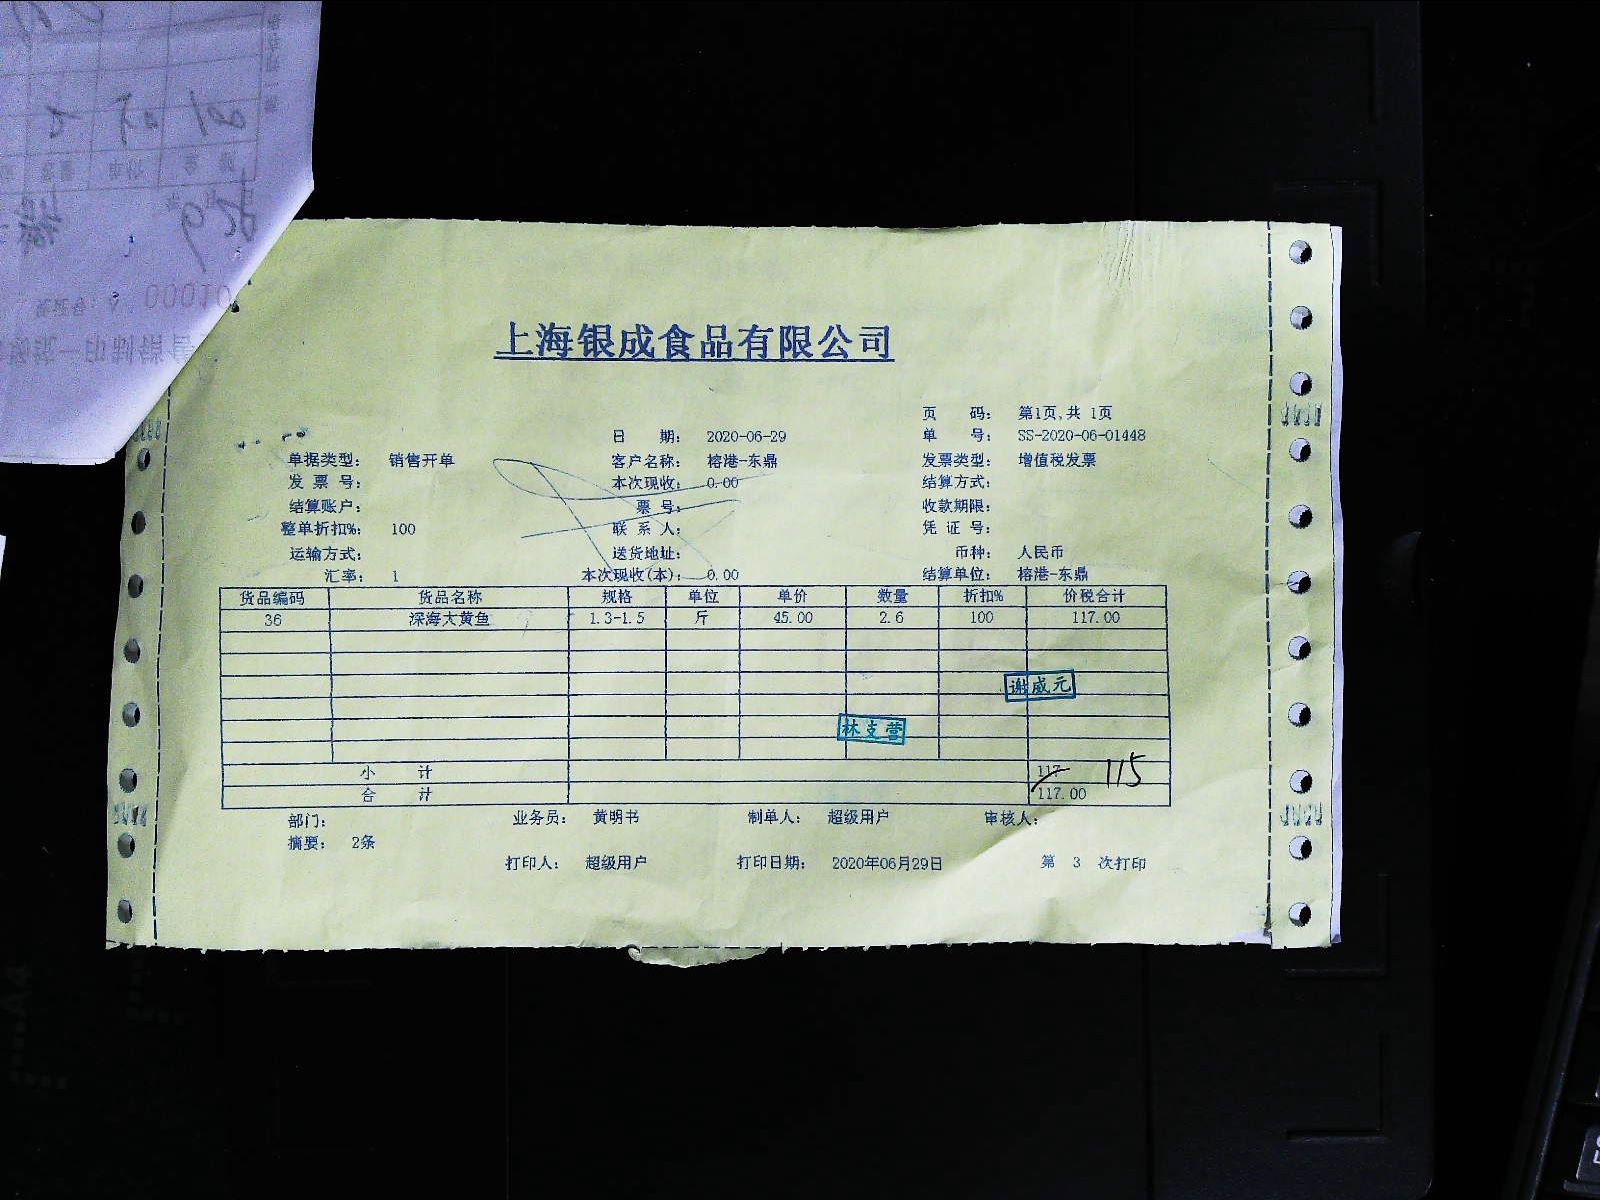 上海银成食品有限公司
页 码: 第1页,共 1页
日 期: 2020-06-29 单 号: SS-2020-06-01448
单据类型: 销售开单 客户名称: 榕港-东鼎 发票类型: 增值税发票
发 票 号: 本次现收: 0.00 结算方式:
结算账户: 票 号: 收款期限:
整单折扣%: 100 联 系 人: 凭 证 号:
运输方式: 送货地址: 币种: 人民币
汇率: 1 本次现收(本): 0.00 结算单位: 榕港-东鼎
货品编码 货品名称 规格 单位 单价 数量 折扣% 价税合计
36 深海大黄鱼 1.3-1.5 斤 45.00 2.6 100 117.00
谢威元
林支营
小 计 117 115
合 计 117.00
部门: 业务员: 黄明书 制单人: 超级用户 审核人:
摘要: 2条
打印人: 超级用户 打印日期: 2020年06月29日 第 3 次打印